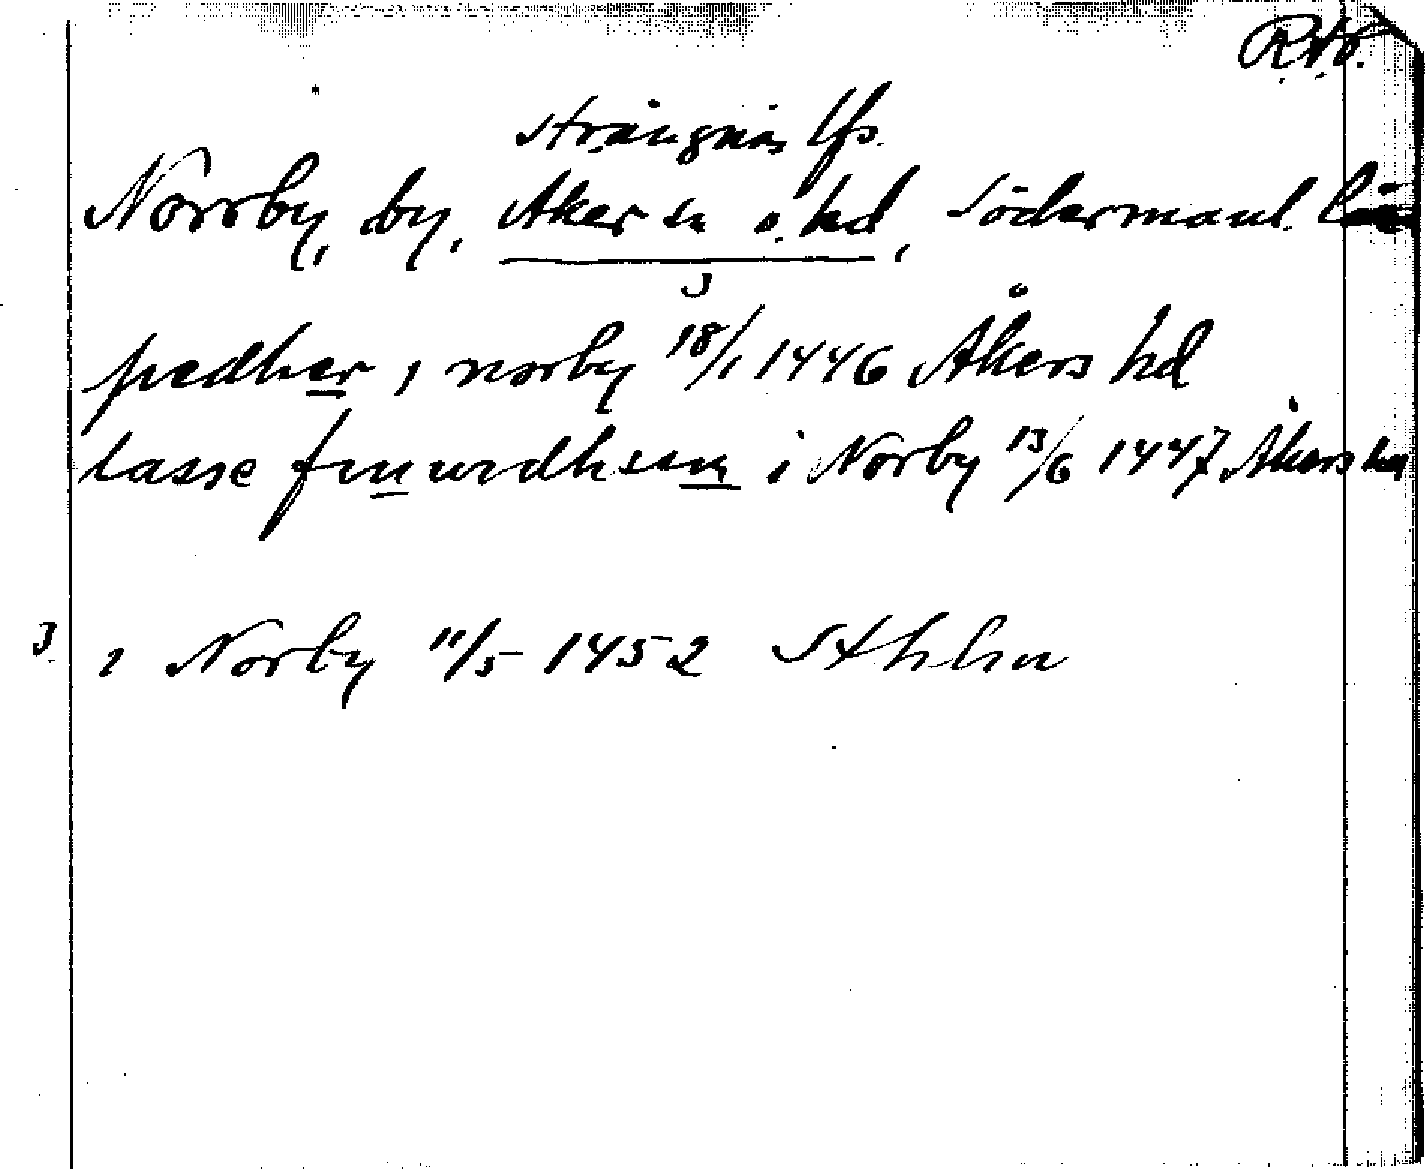 R.A.
Strängnäs lfs.
Norrby, by, Åker sn o. hd, Södermanl. län
J
pedher i norby 18/1 1446 Åkers hd
lasse fin uidhson i Norby 13/6 1447 Åkers hd
J i Norby 11/5 1452 Sthlm